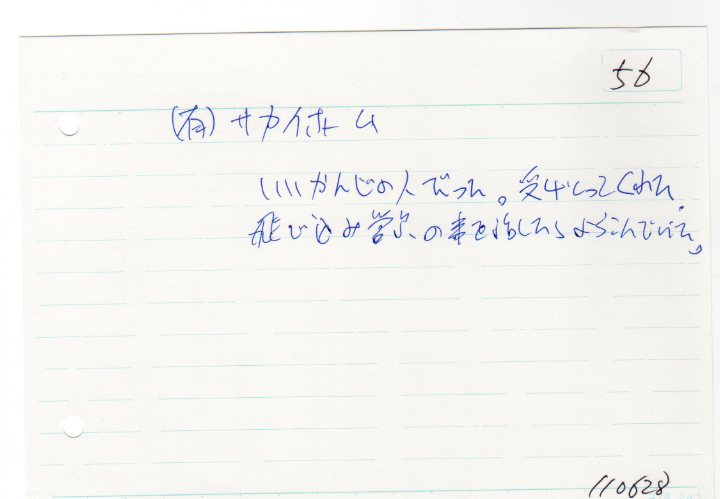 56
(有) サカイホーム
いいかんじの人でった。受けとってくれた。
飛び込み営業の事を話したらよろこんでいた。
110628